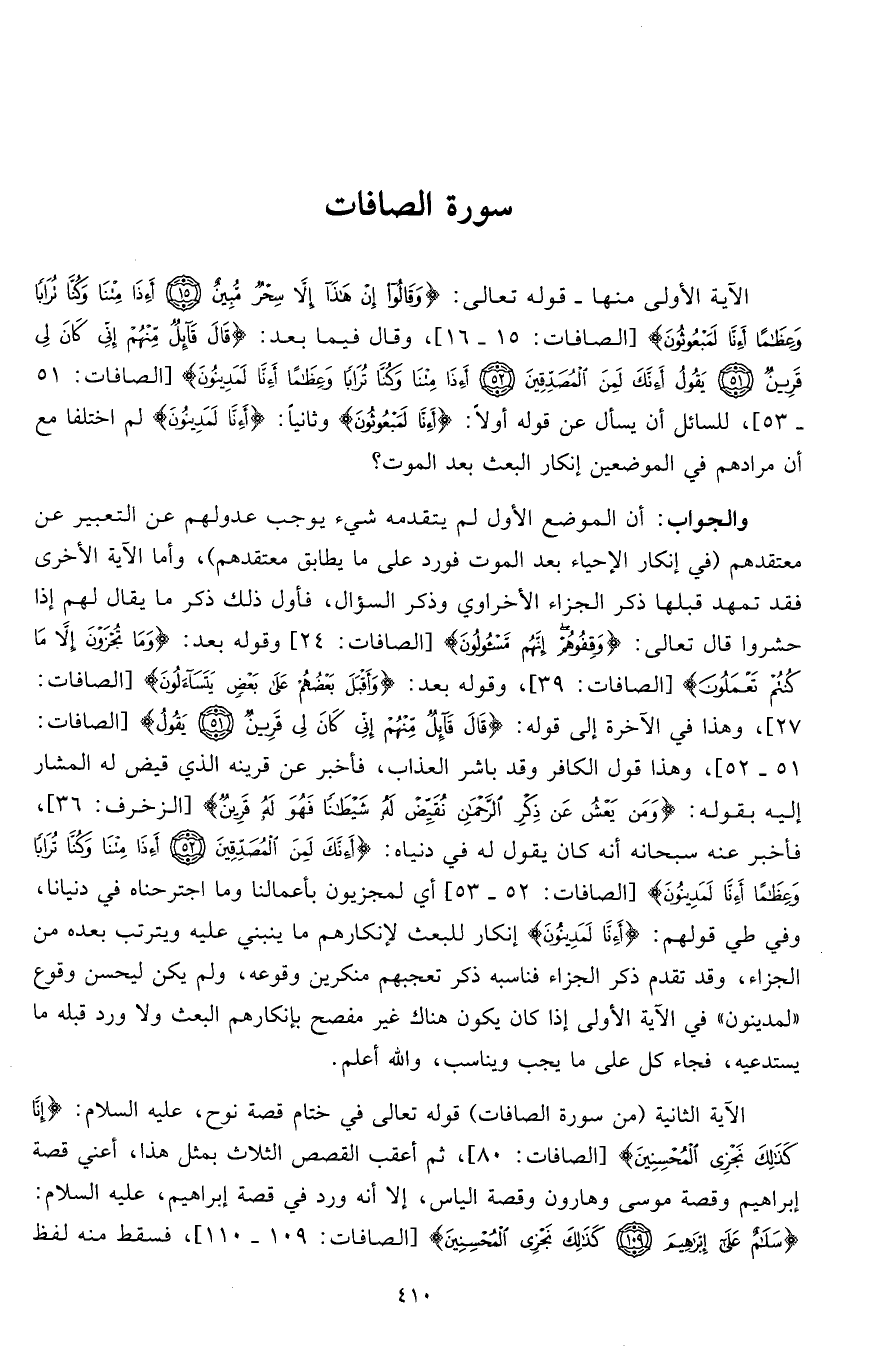 سورة الصافات
الآية الأولى منها ـ قوله تعالى: ﴿وَقَالُوٓا۟ إِنْ هَـٰذَآ إِلَّا سِحْرٌ مُّبِينٌ ۝١٥ أَءِذَا مِتْنَا وَكُنَّا تُرَابًا
وَعِظَـٰمًا أَءِنَّا لَمَبْعُوثُونَ﴾ [الصافات: ١٥ ـ ١٦]، وقال فيما بعد: ﴿قَالَ قَآئِلٌ مِّنْهُمْ إِنِّى كَانَ لِى
قَرِينٌ ۝٥١ يَقُولُ أَءِنَّكَ لَمِنَ ٱلْمُصَدِّقِينَ ۝٥٢ أَءِذَا مِتْنَا وَكُنَّا تُرَابًا وَعِظَـٰمًا أَءِنَّا لَمَدِينُونَ﴾ [الصافات: ٥١
ـ ٥٣]، للسائل أن يسأل عن قوله أولاً: ﴿أَءِنَّا لَمَبْعُوثُونَ﴾ وثانياً: ﴿أَءِنَّا لَمَدِينُونَ﴾ لم اختلفا مع
أن مرادهم في الموضعين إنكار البعث بعد الموت؟
والجواب: أن الموضع الأول لم يتقدمه شيء يوجب عدولهم عن التعبير عن
معتقدهم (في إنكار الإحياء بعد الموت فورد على ما يطابق معتقدهم)، وأما الآية الأخرى
فقد تمهد قبلها ذكر الجزاء الأخراوي وذكر السؤال، فأول ذلك ذكر ما يقال لهم إذا
حشروا قال تعالى: ﴿وَقِفُوهُمْ ۖ إِنَّهُم مَّسْـُٔولُونَ﴾ [الصافات: ٢٤] وقوله بعد: ﴿وَمَا تُجْزَوْنَ إِلَّا مَا
كُنتُمْ تَعْمَلُونَ﴾ [الصافات: ٣٩]، وقوله بعد: ﴿وَأَقْبَلَ بَعْضُهُمْ عَلَىٰ بَعْضٍ يَتَسَآءَلُونَ﴾ [الصافات:
٢٧]، وهذا في الآخرة إلى قوله: ﴿قَالَ قَآئِلٌ مِّنْهُمْ إِنِّى كَانَ لِى قَرِينٌ ۝٥١ يَقُولُ﴾ [الصافات:
٥١ ـ ٥٢]، وهذا قول الكافر وقد باشر العذاب، فأخبر عن قرينه الذي قيض له المشار
إليه بقوله: ﴿وَمَن يَعْشُ عَن ذِكْرِ ٱلرَّحْمَـٰنِ نُقَيِّضْ لَهُۥ شَيْطَـٰنًا فَهُوَ لَهُۥ قَرِينٌ﴾ [الزخرف: ٣٦]،
فأخبر عنه سبحانه أنه كان يقول له في دنياه: ﴿أَءِنَّكَ لَمِنَ ٱلْمُصَدِّقِينَ ۝٥٢ أَءِذَا مِتْنَا وَكُنَّا تُرَابًا
وَعِظَـٰمًا أَءِنَّا لَمَدِينُونَ﴾ [الصافات: ٥٢ ـ ٥٣] أي لمجزيون بأعمالنا وما اجترحناه في دنيانا،
وفي طي قولهم: ﴿أَءِنَّا لَمَدِينُونَ﴾ إنكار للبعث لإنكارهم ما ينبني عليه ويترتب بعده من
الجزاء، وقد تقدم ذكر الجزاء فناسبه ذكر تعجبهم منكرين وقوعه، ولم يكن ليحسن وقوع
«لمدينون» في الآية الأولى إذا كان يكون هناك غير مفصح بإنكارهم البعث ولا ورد قبله ما
يستدعيه، فجاء كل على ما يجب ويناسب، والله أعلم.
الآية الثانية (من سورة الصافات) قوله تعالى في ختام قصة نوح، عليه السلام: ﴿إِنَّا
كَذَٰلِكَ نَجْزِى ٱلْمُحْسِنِينَ﴾ [الصافات: ٨٠]، ثم أعقب القصص الثلاث بمثل هذا، أعني قصة
إبراهيم وقصة موسى وهارون وقصة الياس، إلا أنه ورد في قصة إبراهيم، عليه السلام:
﴿سَلَـٰمٌ عَلَىٰٓ إِبْرَٰهِيمَ ۝١٠٩ كَذَٰلِكَ نَجْزِى ٱلْمُحْسِنِينَ﴾ [الصافات: ١٠٩ ـ ١١٠]، فسقط منه لفظ
٤١٠